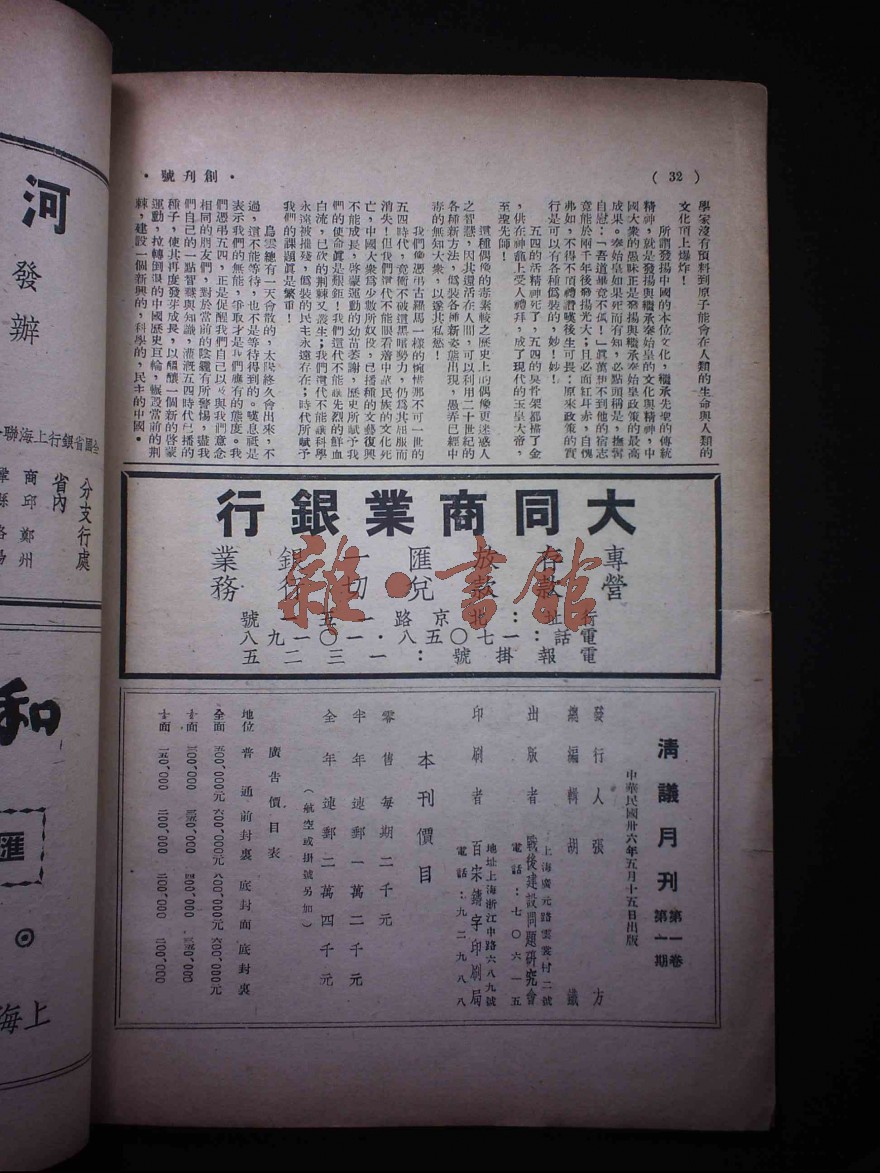 ( 32 )
・創刊號・
學家沒有預料到原子能會在人類的生命與人類的
文化頂上爆炸！
所謂發揚中國的本位文化，繼承先聖的傳統
精神，就是發揚與繼承秦始皇的文化與精神，中
國大衆的愚昧正是發揚與繼承秦始皇政策的最高
成果。秦始皇如果死而有知，必點頭稱是，撫髯
自慰：「吾道畢竟不孤！」眞萬想不到他的宿志
竟能於兩千年後發揚光大；且必面紅耳赤，自愧
弗如，不得不頂禮讚嘆後生可畏：原來政策的實
行是可以有各種僞裝的，妙！妙！
五四的活精神死了，五四的臭骨架都搽了金
，供在神龕上受人禮拜，成了現代的玉皇大帝，
至聖先師！
這種偶像的毒素較之歷史上的偶像更迷惑人
之智慧，因其還活在人間，可以利用二十世紀的
各種新方法，僞裝各種新姿態出現，愚弄已經中
毒的無知大衆，以遂其私慾！
我們像憑弔古羅馬一樣的惋惜那不可一世的
五四時代，竟衝不破這黑暗勢力，仍爲其屈服而
消失！但我們這代不能眼看着中華民族的文化死
亡，中國大衆爲少數所奴役，已播種的文藝復興
不能成長，啓蒙運動的幼苗萎謝，歷史所賦予我
們的使命眞是艱鉅！我們這代不能讓先烈的鮮血
白流，已砍的荆棘又叢生；我們這代不能讓科學
永遠被摧殘，僞裝的民主永遠存在；時代所賦予
我們的課題眞是繁重！
烏雲總有一天會散的，太陽終久會出來，不
過，這不能等待，也不是等待得到的。嘆息祇是
表示我們的無能，爭取才是我們應有的態度。我
們憑弔五四，正是促醒我們自己以及與我們意念
相同的朋友們，對於當前的陰霾有所警惕，盡我
們自己的一點智慧與知識，灌漑五四時代已播的
種子，使其再度發芽成長，以醞釀一個新的啓蒙
運動，拉轉到退的中國歷史巨輪，輾毀當前的荆
棘，建設一個新興的，科學的，民主的中國。
大同商業銀行
專營存款放款匯兌一切銀行業務
行址：北京路一五一號
電話：一七〇五八・一〇一一九八
電報掛號：一三二五
雜・書館
清議月刊
第一卷
第一期
中華民國卅六年五月十五日出版
發行人 張 方
總編輯 胡 鐵
出版者 戰後建設問題研究會
上海廣元路雲裳村二號
電話：七〇六一五
印刷者 百宋鑄字印刷局
地址上海浙江中路六八九號
電話：九二九八八
本刊價目
零售每期二千元
半年連郵一萬二千元
全年連郵二萬四千元
（航空或掛號另加）
廣告價目表
地位 普通 前封裏 底封面 底封裏
全面 五00,000元 六00,000元 八00,000元 六00,000元
河
發辦
全國省銀行上海聯
分支行處
省內
商邱 鄭州
和
匯
上海